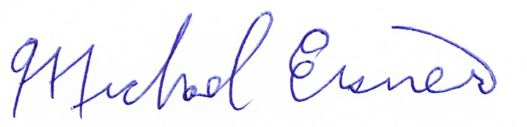 Michael Eisner